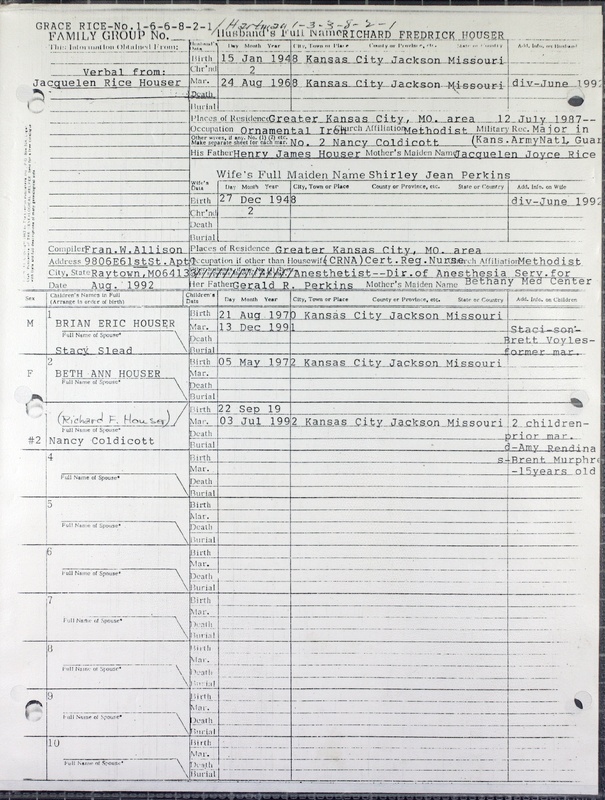 GRACE RICE-No.1-6-6-8-2-1/ Hartman 1-3-3-8-2-1
FAMILY GROUP No. Husband's Full Name RICHARD FREDRICK HOUSER
This Information Obtained From: Husband's Data Day Month Year City, Town or Place County or Province, etc. State or Country Add. Info. on Husband
Birth 15 Jan 1948 Kansas City Jackson Missouri
Verbal from: Chr'nd 2
Jacquelen Rice Houser Mar. 24 Aug 1968 Kansas City Jackson Missouri div-June 1992
Death
Burial
Places of Residence Greater Kansas City, MO. area 12 July 1987--
Occupation Ornamental Iron Church Affiliation Methodist Military Rec. Major in
Other wives, if any. No. (1) (2) etc. Make separate sheet for each mar. No. 2 Nancy Coldicott (Kans.ArmyNatl Guar
His Father Henry James Houser Mother's Maiden Name Jacquelen Joyce Rice
Wife's Full Maiden Name Shirley Jean Perkins
Wife's Data Day Month Year City, Town or Place County or Province, etc. State or Country Add. Info. on Wife
Birth 27 Dec 1948 div-June 1992
Chr'nd 2
Death
Burial
Compiler Fran.W.Allison Places of Residence Greater Kansas City, MO. area
Address 9806E61stSt.Apt Occupation if other than Housewife (CRNA)Cert.Reg.Nurse Church Affiliation Methodist
City, State Raytown,MO64133 Anesthetist--Dir.of Anesthesia Serv.for
Date Aug. 1992 Her Father Gerald R. Perkins Mother's Maiden Name Bethany Med Center
Sex Children's Names in Full (Arrange in order of birth) Children's Data Day Month Year City, Town or Place County or Province, etc. State or Country Add. Info. on Children
1 Birth 21 Aug 1970 Kansas City Jackson Missouri
M BRIAN ERIC HOUSER Mar. 13 Dec 1991 Staci-son-
Full Name of Spouse* Death Brett Voyles-
Stacy Slead Burial former mar.
2 Birth 05 May 1972 Kansas City Jackson Missouri
F BETH ANN HOUSER Mar.
Full Name of Spouse* Death
Burial
Birth 22 Sep 19
(Richard F. Houser) Mar. 03 Jul 1992 Kansas City Jackson Missouri 2 children-
Full Name of Spouse* Death prior mar.
#2 Nancy Coldicott Burial d-Amy Rendina
4 Birth s-Brent Murphre
Mar. -15years old
Full Name of Spouse* Death
Burial
5 Birth
Mar.
Full Name of Spouse* Death
Burial
6 Birth
Mar.
Full Name of Spouse* Death
Burial
7 Birth
Mar.
Full Name of Spouse* Death
Burial
8 Birth
Mar.
Full Name of Spouse* Death
Burial
9 Birth
Mar.
Full Name of Spouse* Death
Burial
10 Birth
Mar.
Full Name of Spouse* Death
Burial